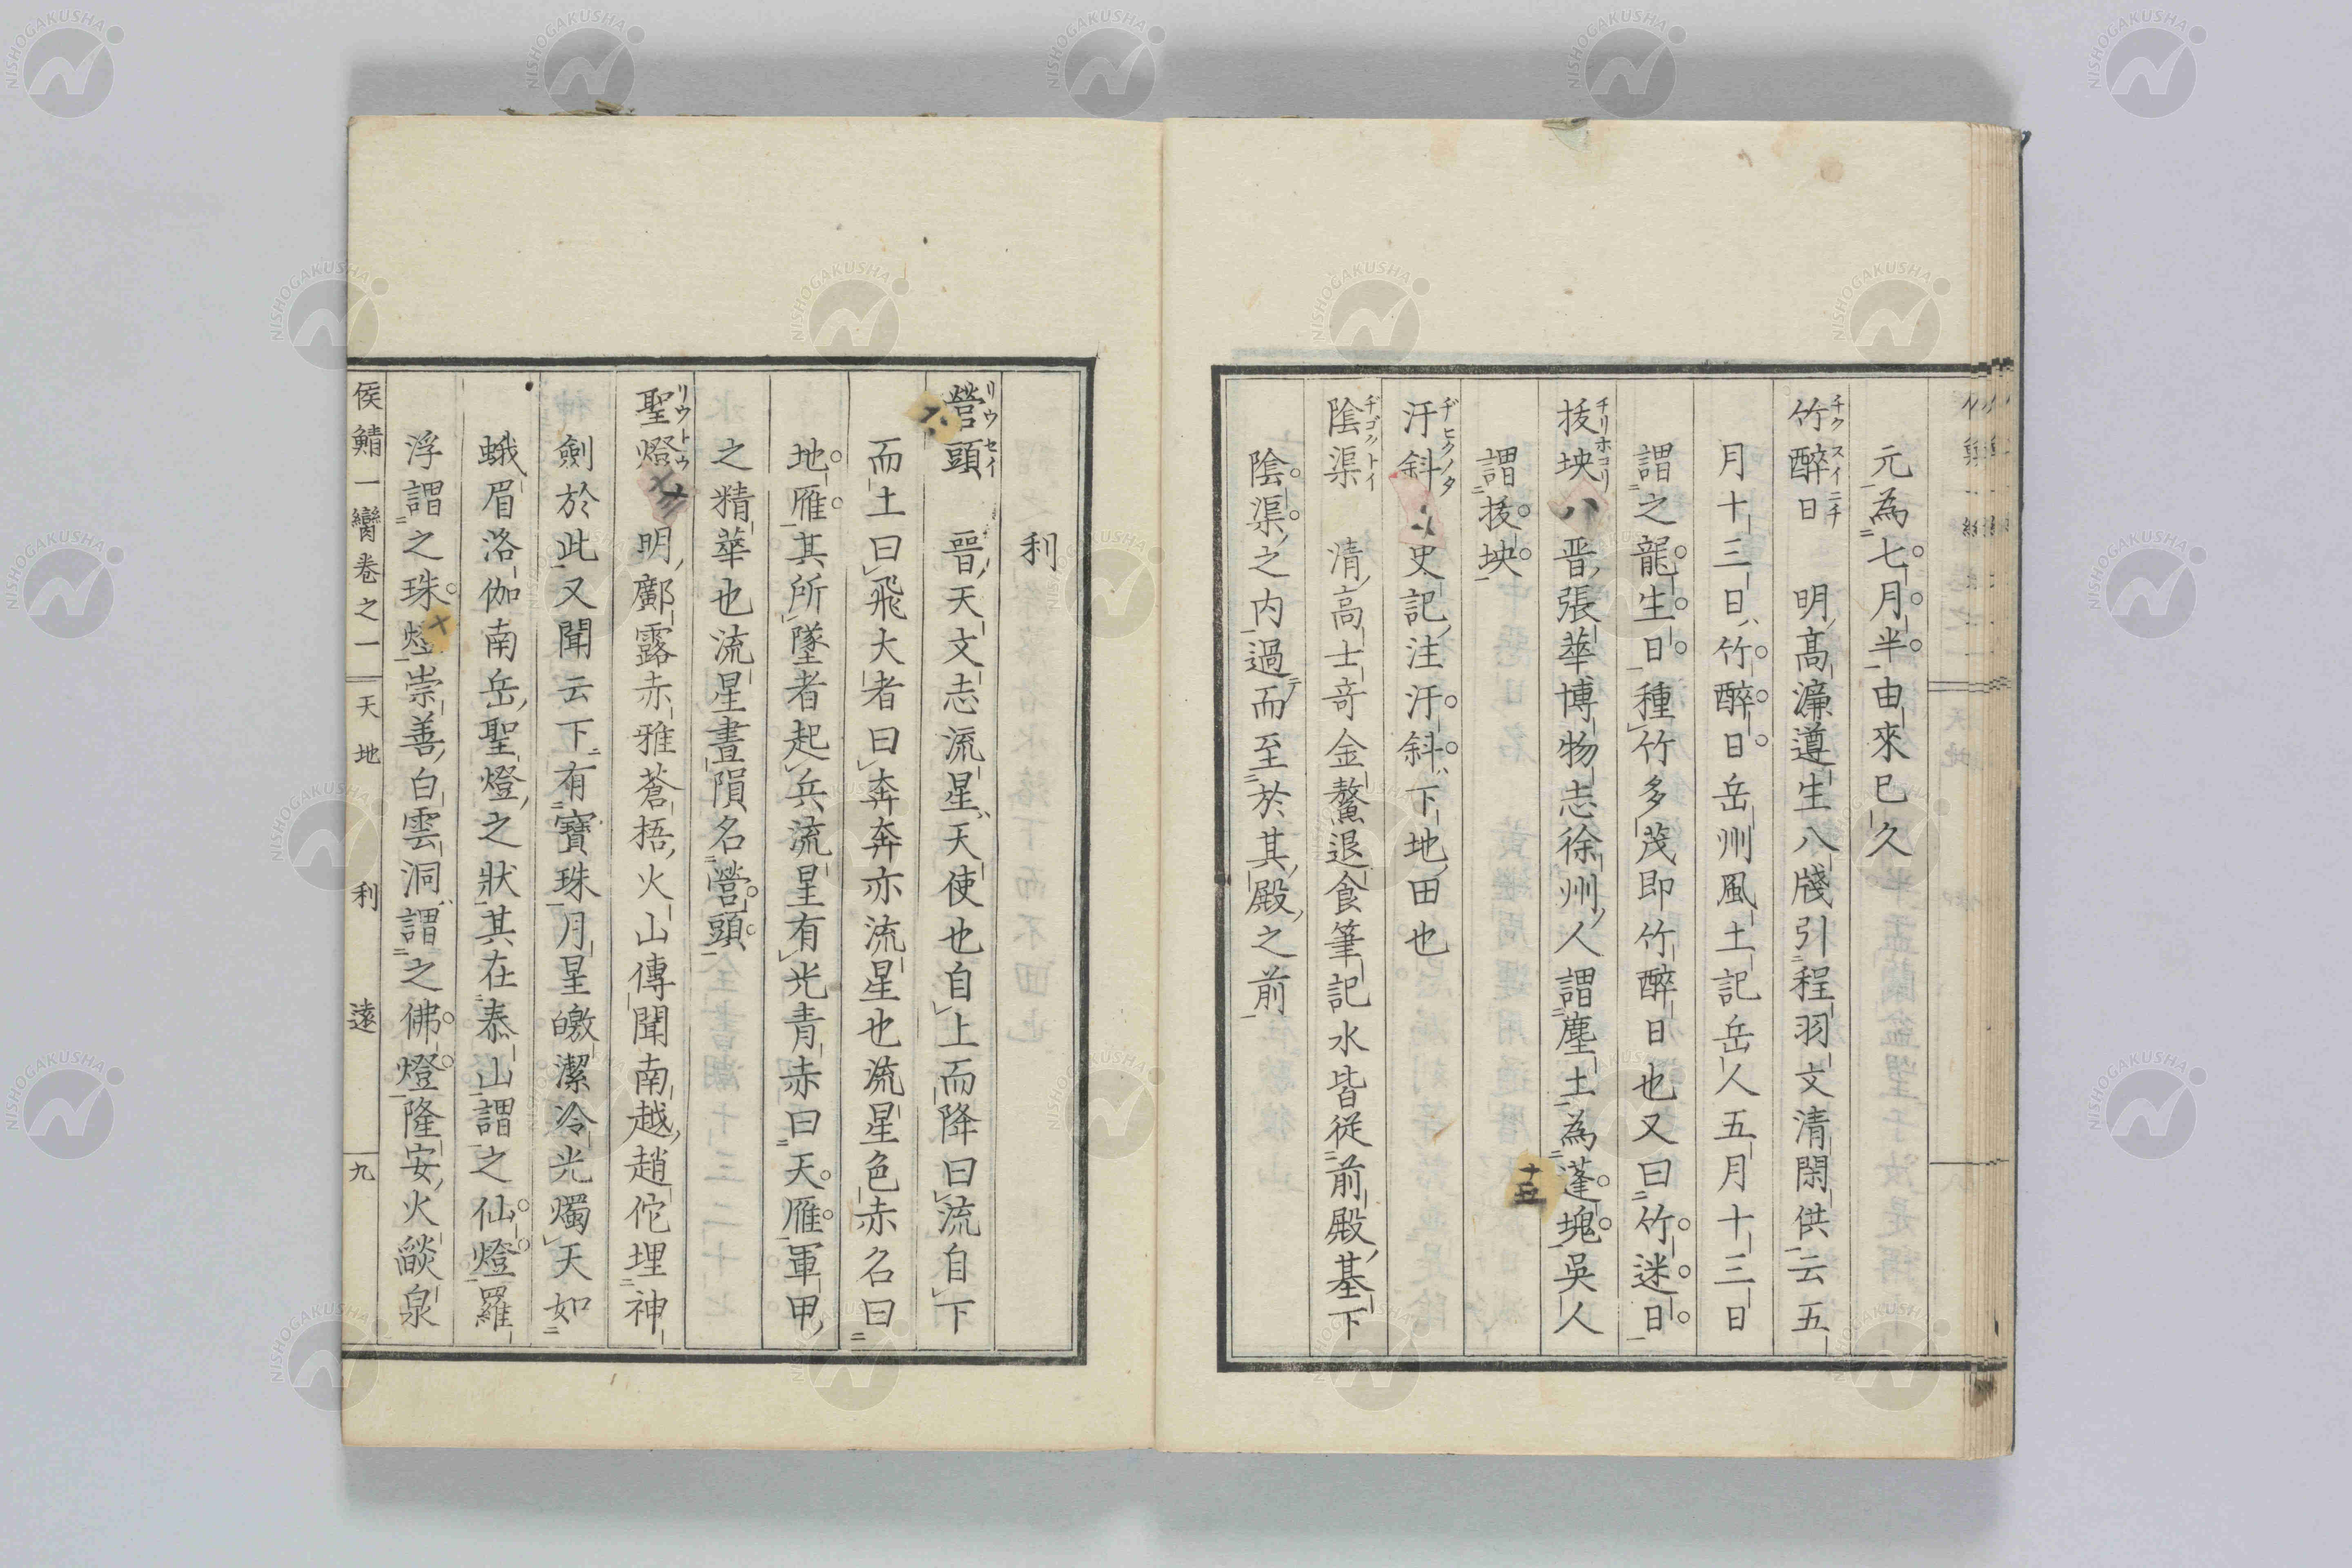 元為七月半由來已久
竹醉日 明高濂遵生八牋引程羽文清閑供云五
月十三日竹醉日岳州風土記岳人五月十三日
謂之龍生日種竹多茂即竹醉日也又曰竹迷日
坺坱 晋張華博物志徐州人謂塵土為蓬塊吳人
謂坺坱
汙斜 史記注汙斜下地田也
陰渠 清高士竒金鰲退食筆記水皆從前殿基下
陰渠之内過而至於其殿之前
利
營頭 晉天文志流星天使也自上而降曰流自下
而土曰飛大者曰奔奔亦流星也流星色赤名曰
地雁其所墜者起兵流星有光青赤曰天雁軍甲
之精華也流星晝隕名營頭
聖燈 明鄺露赤雅蒼梧火山傳聞南越趙佗埋神
劍於此又聞云下有寶珠月星皦潔冷光燭天如
蛾眉洛伽南岳聖燈之狀其在泰山謂之仙燈羅
浮謂之珠燈崇善白雲洞謂之佛燈隆安火燄泉
侯鯖一臠卷之一 天地 利 遠 九
リウセイ
リウトウ
チリホコリ
NISHOGAKUSHA